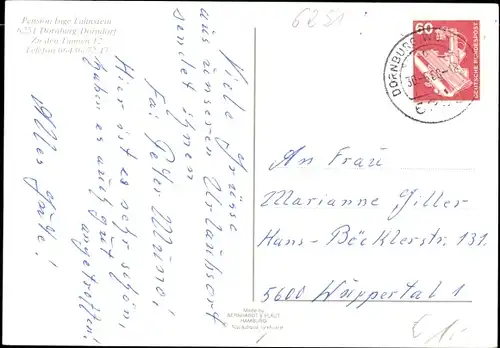 Pension Inge Lahnstein
6251 Dornburg/Dorndorf
Zu den Tannen 12
6251
60
DEUTSCHE BUNDESPOST
DORNBURG
Viele Grüsse
aus unserem Urlaubsort
sendet ihnen
Fa. Peter Munno!
Hier ist es sehr schön,
haben es auch gut
angetroffen!
Alles Gute!
An Frau
Marianne Giller
Hans-Böcklerstr. 131
5600 Wuppertal 1
Made by
BERNHARDT & PLAUT
HAMBURG